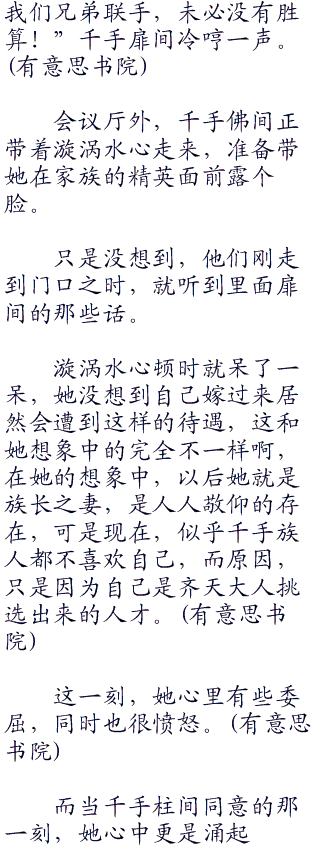 我们兄弟联手，未必没有胜
算！”千手扉间冷哼一声。
(有意思书院)
会议厅外，千手佛间正
带着漩涡水心走来，准备带
她在家族的精英面前露个
脸。
只是没想到，他们刚走
到门口之时，就听到里面扉
间的那些话。
漩涡水心顿时就呆了一
呆，她没想到自己嫁过来居
然会遭到这样的待遇，这和
她想象中的完全不一样啊，
在她的想象中，以后她就是
族长之妻，是人人敬仰的存
在，可是现在，似乎千手族
人都不喜欢自己，而原因，
只是因为自己是齐天大人挑
选出来的人才。(有意思书
院)
这一刻，她心里有些委
屈，同时也很愤怒。(有意思
书院)
而当千手柱间同意的那
一刻，她心中更是涌起